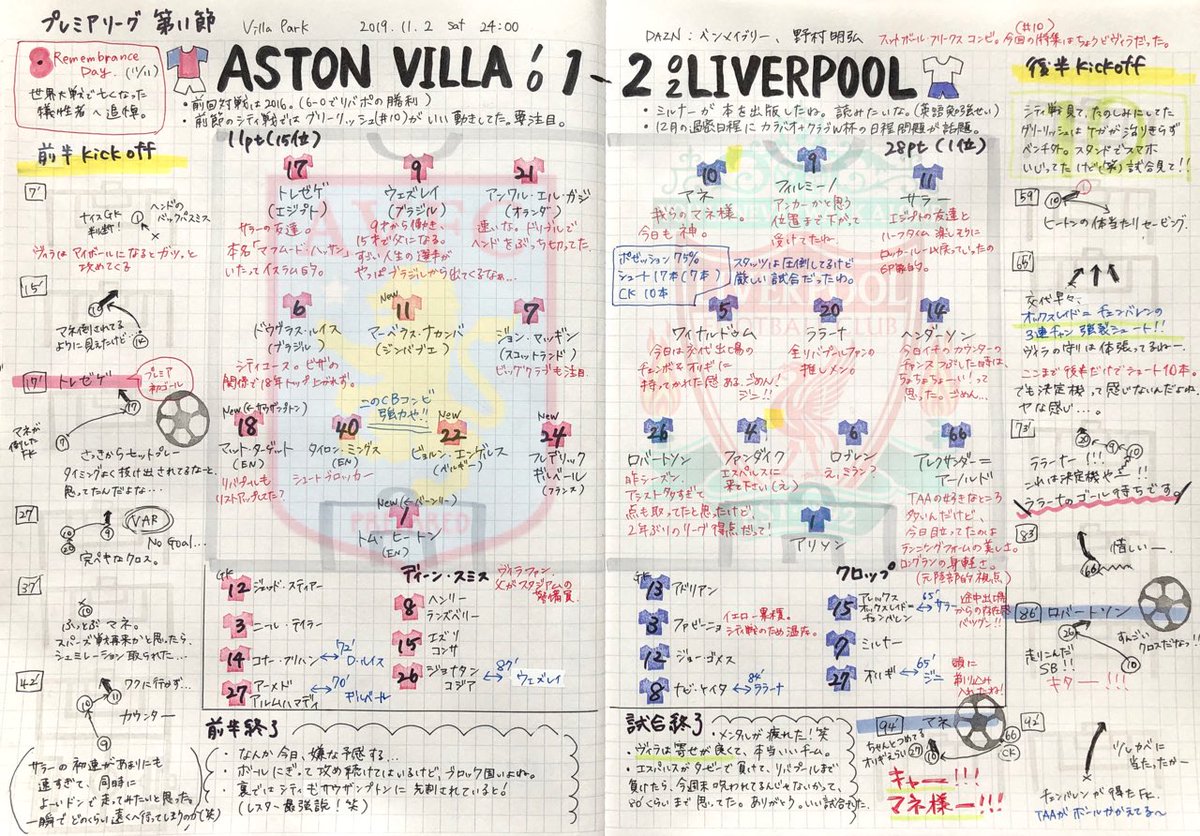 プレミアリーグ 第11節
Villa Park
2019.11.2 sat 24:00
DAZN: ベンメイブリー、野村明弘
(#10)
フットボール・フリークス コンビ。今回の特集はちょうどヴィラだった。
Remembrance
Day. (11/11)
世界大戦で亡くなった
犠牲者へ追悼。
ASTON VILLA 1-2 LIVERPOOL
・前回対戦は2016。(6-0でリバポの勝利)
・前節のシティ戦ではグリーリッシュ(#10)がいい動きしてた。要注目。
・ミルナーが本を出版したね。読みたいな。(英語勉強せい)
・12月の過密日程にカラバオ+クラブW杯の日程問題が話題。
11pt(15位)
28pt (1位)
前半 kick off
7'
ナイスGK
判断!
ヘンドの
バックパスミス
ヴィラはマイボールになるとガツッと
攻めてくる
15'
マネ倒されてる
ように見えたけど…
17' トレゼゲ
プレミア
初ゴール
マネが
倒した
FK
さっきからセットプレー
タイミングよく抜け出されてるなーと、
思ってたんだよな…
27'
VAR
No Goal…
完ペキなクロス。
37'
ぶっとぶマネ。
スパーズ戦再来かと思ったら、
シュミレーション取られた…
42'
ワクに行かず…
カウンター
サラーの初速があまりにも
速すぎて、同時に
よーいドンで走ってみたいと思った。
一瞬でどのくらい遠くへ行ってしまうのか(笑)
17
トレゼゲ
(エジプト)
サラーの友達。
本名「マフムード・ハッサン」
いたってイスラムな名。
9
ウェズレイ
(ブラジル)
9才から働き、
15才で父になる。
すごい人生の選手が
やっぱーブラジルから出てくるなぁ…
21
アンワル・エル・ガジ
(オランダ)
速いな。ドリブルで
ヘンドをぶっちぎってた。
6
ドウグラス・ルイス
(ブラジル)
シティユース。ビザの
関係で18年トップ上がれず。
New
11
マーベラス・ナカンバ
(ジンバブエ)
7
ジョン・マッギン
(スコットランド)
ビッグクラブも注目。
New(←サウザンプトン)
18
マット・ターゲット
(EN)
リバプールも
リストアップしてた?
このCBコンビ
強力や!!
40
タイロン・ミングス
(EN)
シュートブロッカー
New
22
ビョルン・エンゲルス
(ベルギー)
New
24
フレデリック
ギルベール
(フランス)
New(←バーンリー)
1
トム・ヒートン
(EN)
GK
12 ジェッド・スティアー
3 ニール・テイラー
14 コナー・フリハン ↔ 72' D.ルイス
27 アーメド
アルムハマディ ↔ 70' ギルベール
ディーン・スミス
ヴィラファン。
父がスタジアムの
警備員。
8 ヘンリー
ランズベリー
15 エズリ
コンサ
26 ジョナタン
コジア ↔ 87' ウェズレイ
前半終了
・なんか今日、嫌な予感する…
・ボールにぎって攻め続けてはいるけど、ブロック固いよね。
・裏ではシティもサウザンプトンに先制されている。
(レスター最強説!笑)
10
マネ
我らのマネ様。
今日も神。
9
フィルミーノ
アンカーかと思う
位置まで下がって
受けてたね。
11
サラー
エジプトの友達と
ハーフタイム楽しそうに
ロッカールーム戻っていったの
印象的。
ポゼッション 75%
シュート17本(7本)
CK 10本
スタッツは圧倒してるけど
厳しい試合だったわ。
5
ワイナルドゥム
今日は交代出場の
チェンボとオリギに
持ってかれた感ある。ごめん!
ジニ!!
20
ララーナ
全リバプールファンの
推しメン。
14
ヘンダーソン
今日イチのカウンターの
チャンスつぶした時は、
ちょちょちょーい!って
思った。ごめん…
26
ロバートソン
昨シーズン、
アシスト多すぎて
点も取ってたと思ったけど、
2年ぶりのリーグ得点だって!
4
ファンダイク
エスパルスに
来て下さい(え)
6
ロブレン
え、ミラン?
66
アレクサンダー=
アーノルド
TAAの好きなところ
多いんだけど、
今日目立ってたのは
ランニングフォームの美しさ。
ロングランの身軽さ。
(元陸部的視点)
1
アリソン
GK
13 アドリアン
3 ファビーニョ
イエロー累積。
シティ戦のため温存。
12 ジョー・ゴメス
8 ナビ・ケイタ ↔ 84' ララーナ
クロップ
15 アレックス
オックスレイド=
チェンバレン ↔ 65' サラー
途中出場
からの存在感
バツグン!!
7 ミルナー
27 オリギ ↔ 65' ジニ
頭に
剃り込み
入れたね!
試合終了
・メンタルが疲れた!笑
・ヴィラは寄せが良くて、本当いいチーム。
・エスパルスがダービーで負けて、リバプールまで
負けたら、今週末呪われてるんじゃないかって、
86'くらいまで思ってた。ありがとう。いい試合でした。
後半kickoff
シティ戦見て、たのしみにしてた
グリーリッシュはケガが治りきらず
ベンチ外。スタンドでスマホ
いじってたけど(笑)試合見て!!
59'
ヒートンの体当たりセービング。
65'
交代早々、
オックスレイド=チェンバレンの
3連チャン強烈シュート!!
ヴィラの守りは体張ってるねー。
ここまで後半だけでシュート10本。
でも決定機って感じないんだよね。
ヤな感じ…。
73'
ララーナ!!!
これは決定機やー!!
ララーナのゴール待ちです。
83'
惜しいー。
86' ロバートソン
走りこんだ
SB!!
すんごい
クロスだなっ!!
キター!!!
94' マネ
ちゃんとつめてる
オリギえらい
CK
キャー!!!
マネ様ー!!!
92'
ツルカベに
当たったかー
チェンバレンが得たFK。
TAAがボールかかえてる〜